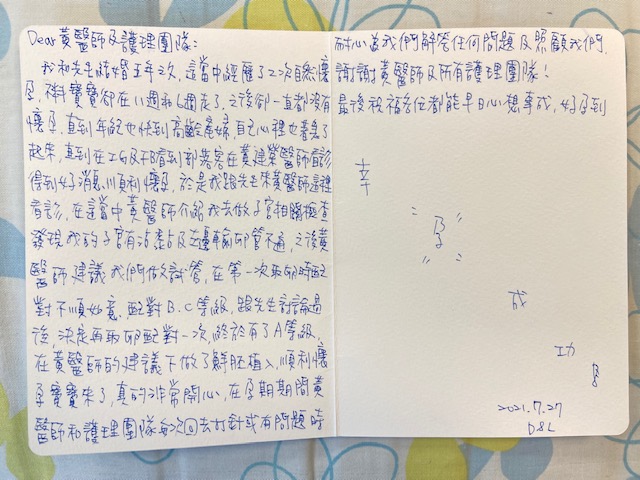 Dear黃醫師及護理團隊：
我和先生結婚五年之久，這當中經歷了2次自然懷
孕，不料寶寶卻在11週和6週走了，之後卻一直都沒有
懷孕，直到年紀也快到高齡產婦，自己心裡也著急了
起來，直到在IG及FB看到部落客在黃建榮醫師看診
得到好消息順利懷孕，於是我跟先生來黃醫師這裡
看診，在這當中黃醫師介紹我去做子宮相關檢查
發現我的子宮有沾黏及左邊輸卵管不通，之後黃
醫師建議我們做試管，在第一次取卵時配
對不順如意，配對B.C等級，跟先生討論過
後，決定再取卵配對一次，終於有了A等級，
在黃醫師的建議下做了鮮胚植入，順利懷
孕寶寶來了，真的非常開心，在孕期期間黃
醫師和護理團隊每次回去打針或有問題時
耐心為我們解答任何問題及照顧我們，
謝謝黃醫師及所有護理團隊！
最後祝福各位都能早日心想事成，好孕到
幸
"孕"
成
功
2021.7.27
D&L